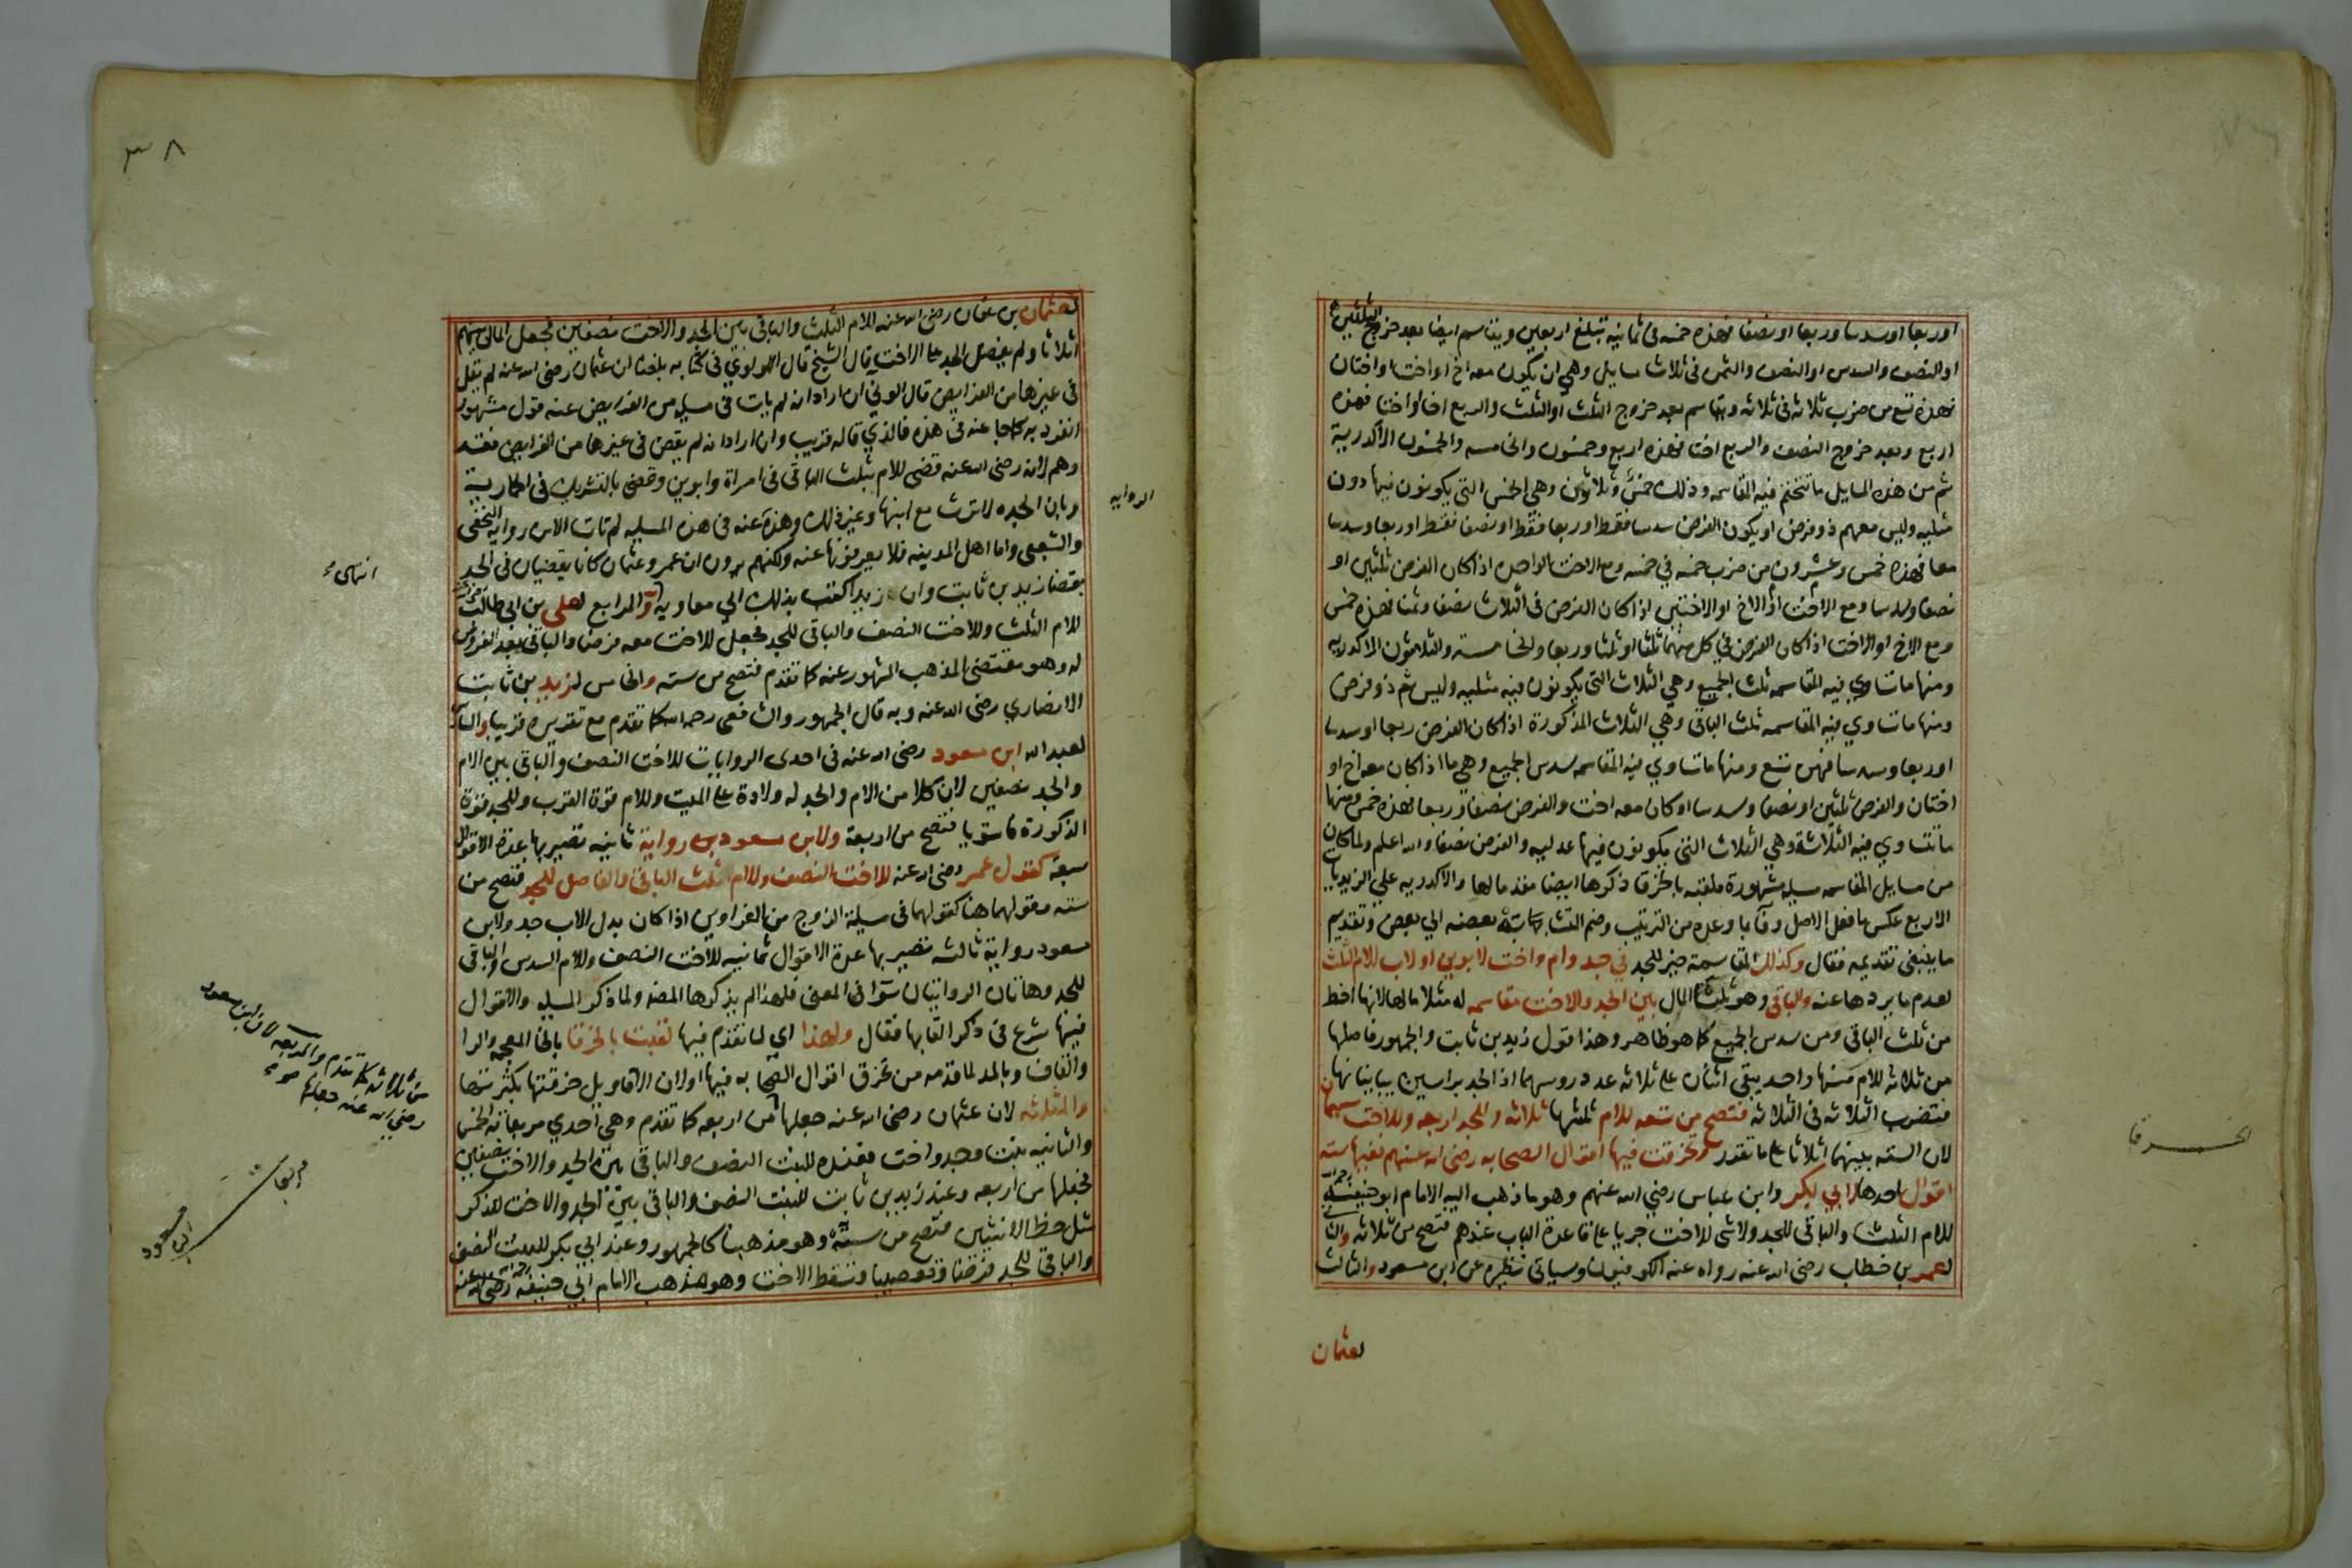 او ربعا او سدسا وربعا او نصفا فهذه خمسه فى ثمانيه تبلغ اربعين ويتقاسم ايضا بعد خروج الثلثين
او النصف والسدس او النصف والثمن فى ثلاث مسايل وهي ان يكون معه اخ او اخت او اختان
فهذه تسع من ضرب ثلاثه فى ثلاثه ويقاسم بعد خروج الثلث او الثلث والربع اخا او اختا فهذه
اربع وبعد خروج النصف والربع اختا فهذه اربع وخمسون والخامسه والخمسون الاكدرية
ثم من هذه المسايل ما تتحتم فيه المقاسمه وذلك خمس وثلاثون وهي الخمس التي يكونون فيها دون
مثليه وليس معهم ذو فرض او يكون الفرض سدسا فقط او ربعا فقط او نصفا فقط او ربعا وسدسا
معا فهذه خمس وعشرون من ضرب خمسه في خمسه ومع الاخت الواحده اذا كان الفرض ثلثين او
نصفا وسدسا ومع الاخت او الاخ او الاختين اذا كان الفرض فى الثلاث نصفا وثمنا فهذه خمس
ومع الاخ او الاخت اذا كان الفرض في كل منهما ثلثا او ثلثا وربعا والخامسه والثلاثون الاكدريه
ومنها ما تساوي فيه المقاسمه ثلث الجميع وهي الثلاث التي يكونون فيه مثليه وليس ثم ذو فرض
ومنها ما تساوي فيه المقاسمه ثلث الباقى وهي الثلاث المذكورة اذا كان الفرض ربعا او سدسا
او ربعا وسدسا فهن تسع ومنها ما تساوي فيه المقاسمه سدس الجميع وهي ما اذا كان معه اخ او
اختان والفرض ثلثين او نصفا وسدسا او كان معه اخت والفرض نصفا وربعا فهذه خمس ومنها
ما تتساوي فيه الثلاثة وهي الثلاث التي يكونون فيها عدليه والفرض نصفا والله اعلم ولما كان
من مسايل المقاسمه مسيله مشهورة ملقبه بالخرقا ذكرها ايضا مقدما لها والاكدريه علي الزيديات
الاربع عكس ما فعل الاصل وفا بما وعد من الترتيب وضم المتشابهات بعضه الي بعض وتقديم
ما ينبغى تقديمه فقال وكذلك المقاسمة خير للجد في جد وام واخت لابوين او لاب للام الثلث
لعدم ما يردها عنه والباقى وهو ثلثا المال بين الجد والاخت مقاسمه له مثلا ما لها لانها احظ
من ثلث الباقى ومن سدس الجميع كما هو ظاهر وهذا قول زيد بن ثابت والجمهور فاصلها
من ثلاثه للام منها واحد يبقى اثنان على ثلاثه عدد روسهما اذ الجد براسين يباينانها
فتضرب الثلاثه فى الثلاثه فتصح من تسعه للام ثلثها ثلاثه وللجد اربعه وللاخت سهمان
لان السته بينهما اثلاثا على ما تقدر وتخرقت فيها اقوال الصحابه رضى الله عنهم ففيها سته
اقوال احدها لابي بكر وابن عباس رضي الله عنهم وهو ما ذهب اليه الامام ابو حنيفة
للام الثلث والباقى للجد ولا شى للاخت جريا على قاعدة الباب عندهم فتصح من ثلاثه والثانى
لعمر بن خطاب رضى الله عنه رواه عنه الكوفيون وسياتى نظيره عن ابن مسعود والثالث
لعثمان
الخرقا
٣٨
لعثمان بن عفان رضى الله عنه للام الثلث والباقى بين الجد والاخت نصفين فجعل المال بينهم
اثلاثا ولم يفضل الجد على الاخت قال الشيخ قال اللولوي فى كتابه بلغنا ان عثمان رضى الله عنه لم يقل
فى غيرها من الفرايض قال الونى ان اراد انه لم يات فى مسيله من الفرايض عنه قول مشهور
انفرد به كما جا عنه فى هذه فالذي قاله قريب وان اراد انه لم يقض فى غيرها من الفرايض فقد
وهم لانه رضى الله عنه قضى للام بثلث الباقى فى امراة وابوين وقضى بالتشريك فى الحمارية
وبان الجده لا ترث مع ابنها وغير ذلك وهذه عنه فى هذه المسيله لم تات الا من روايه النخعى
والشعبى واما اهل المدينه فلا يعرفونها عنه ولكنهم يرون ان عمر وعثمان كانا يقضيان فى الجد
بقضا زيد بن ثابت وان زيدا كتب بذلك الي معاويه والرابع لعلى بن ابى طالب
للام الثلث وللاخت النصف والباقى للجد فجعل للاخت معه فرضا والباقى بعد الفروض
له وهو مقتضى المذهب المشهور عنه كما تقدم فتصح من سته والخامس لزيد بن ثابت
الانصاري رضى الله عنه وبه قال الجمهور والشافعى رحمه الله كما تقدم مع تقريره قريبا والسادس
لعبد الله ابن مسعود رضى الله عنه فى احدى الروايات للاخت النصف والباقى بين الام
والجد نصفين لان كلا من الام والجد له ولادة على الميت وللام قوة القرب وللجد قوة
الذكورة فاستويا فتصح من اربعة ولابن مسعود رواية ثانيه تصير بها عدة الاقوال
سبعة كقول عمر رضى الله عنه للاخت النصف وللام ثلث الباقى والفاضل للجد فتصح من
سته وقولهما هنا كقولهما فى مسيلة الزوج من الغراوين اذا كان بدل الاب جد ولابن
مسعود رواية ثالثه تصير بها عدة الاقوال ثمانيه للاخت النصف وللام السدس والباقى
للجد وهاتان الروايتان سوا فى المعنى فلهذا لم يذكرها المصنف ولما ذكر المسيله والاقوال
فيها شرع فى ذكر القابها فقال ولهذا اي لما تقدم فيها لقبت بالخرقا بالخا المعجمه والرا
والقاف وبالمد لما قدمه من تخرق اقوال الصحابه فيها او لان الاقاويل خرقتها بكثرتها
والمثلثه لان عثمان رضى الله عنه جعلها من اربعه كما تقدم وهي احدي مربعاته الخمس
والثانيه بنت وجد واخت فعنده للبنت النصف والباقى بين الجد والاخت نصفين
فجعلها من اربعه وعند زيد بن ثابت للبنت النصف والباقى بين الجد والاخت للذكر
مثل حظ الانثيين فتصح من ستة وهو مذهبنا كالجمهور وعند ابي بكر للبنت النصف
والباقى للجد فرضا وتعصيبا وتسقط الاخت وهو مذهب الامام ابي حنيفه رضى الله عنه
الروايه
انتهى
من ثلاثه كما تقدم والمربعه لان ابن مسعود
رضي الله عنه جعلها صح
مربعات
ابن مسعود